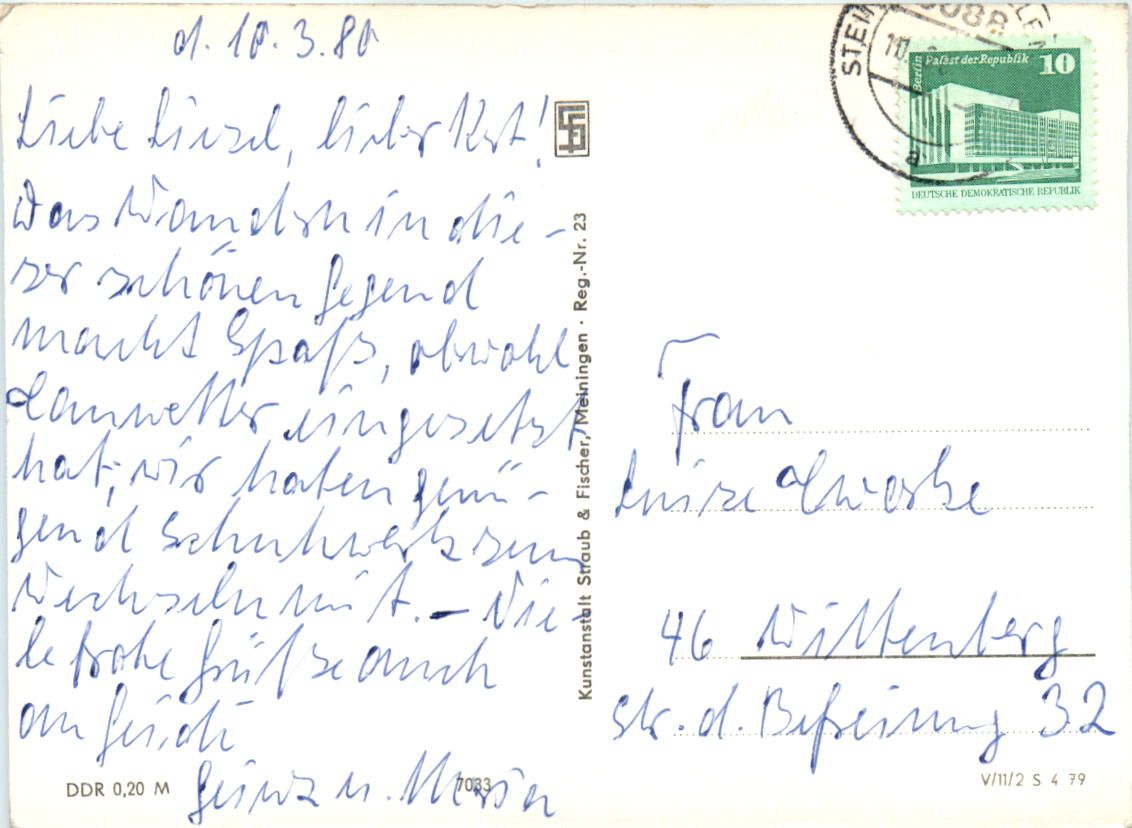 d. 10.3.80
Liebe Liesel, lieber Kurt!
Das Wandern in die-
ser schönen Gegend
macht Spaß, obwohl
Tauwetter eingesetzt
hat; wir haben genü-
gend Schuhwerk zum
Wechseln mit. – Vie-
le frohe Grüße auch
an Heidi
Heinz u. Maria
DDR 0,20 M
7033
Kunstanstalt Straub & Fischer, Meiningen · Reg.-Nr. 23
STEIN
10.
a
Berlin
Palast der Republik
10
DEUTSCHE DEMOKRATISCHE REPUBLIK
Frau
Luise
46 Wittenberg
Str. d. Befreiung 32
V/11/2 S 4 79